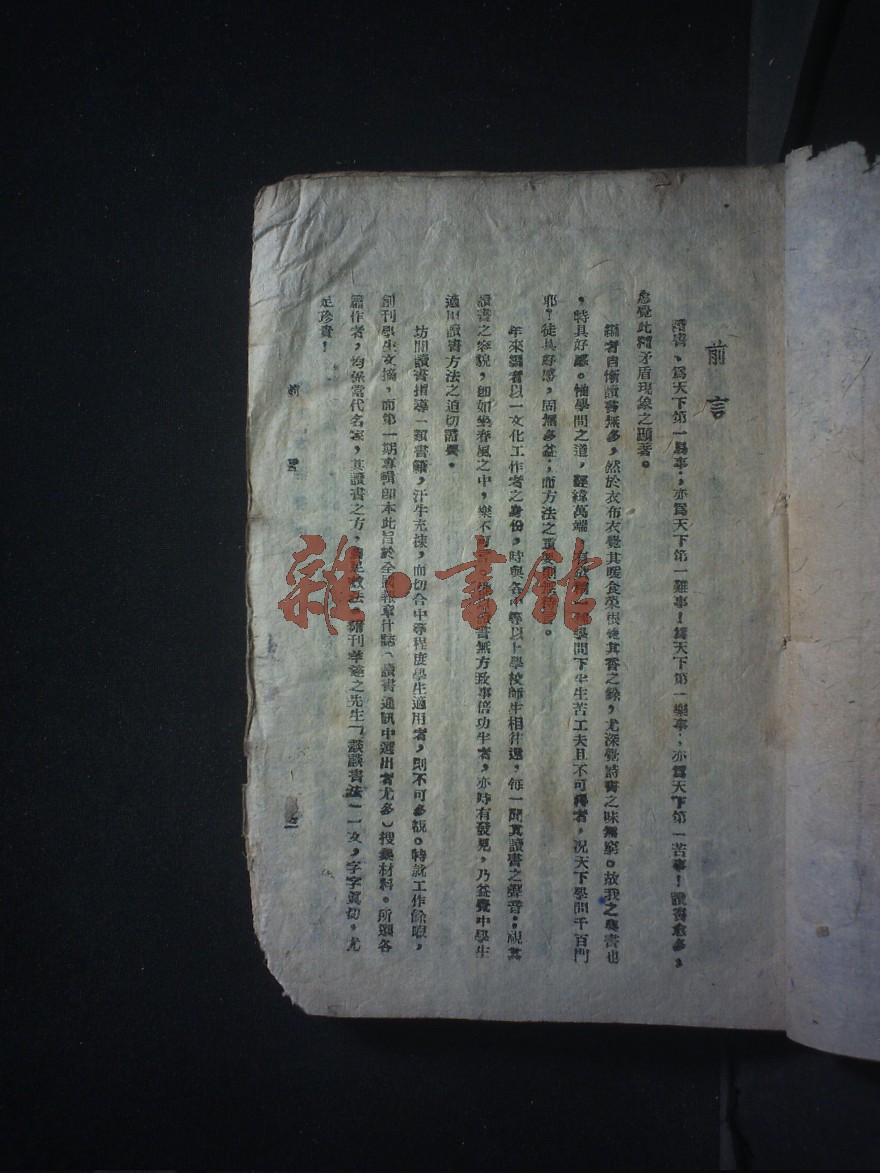 前言
讀書、爲天下第一易事;亦爲天下第一難事!爲天下第一樂事;亦爲天下第一苦事!讀書愈多,
愈覺此種矛盾現象之顯著。
編者自慚讀書無多,然於衣布衣覺其暖食菜根覺其香之餘,尤深覺詩書之味無窮。故我之與書也
,特具好感。惟學問之道,經緯萬端,有 學問下半生苦工夫且不可得者,况天下學問千百門
耶!徒具好感,固無多益;而方法之重要則 。
年來編者以一文化工作者之身份,時與各中等以上學校師生相往還,每一聞其讀書之聲音;視其
讀書之容貌,卽如坐春風之中,樂不可 書無方致事倍功半者,亦時有發見,乃益覺中學生
適用讀書方法之迫切需要。
坊間讀書指導一類書籍,汗牛充棟,而切合中等程度學生適用者,則不可多覩。特就工作餘暇,
創刊學生文摘,而第一期專輯卽本此旨於全國報章什誌(讀書通訊中選出者尤多)搜集材料。所選各
篇作者,均係當代名家,其讀書之方, 足效法,補刊 先生「談讀書法」一文,字字眞切,尤
足珍貴!
前言
一
雜·書館